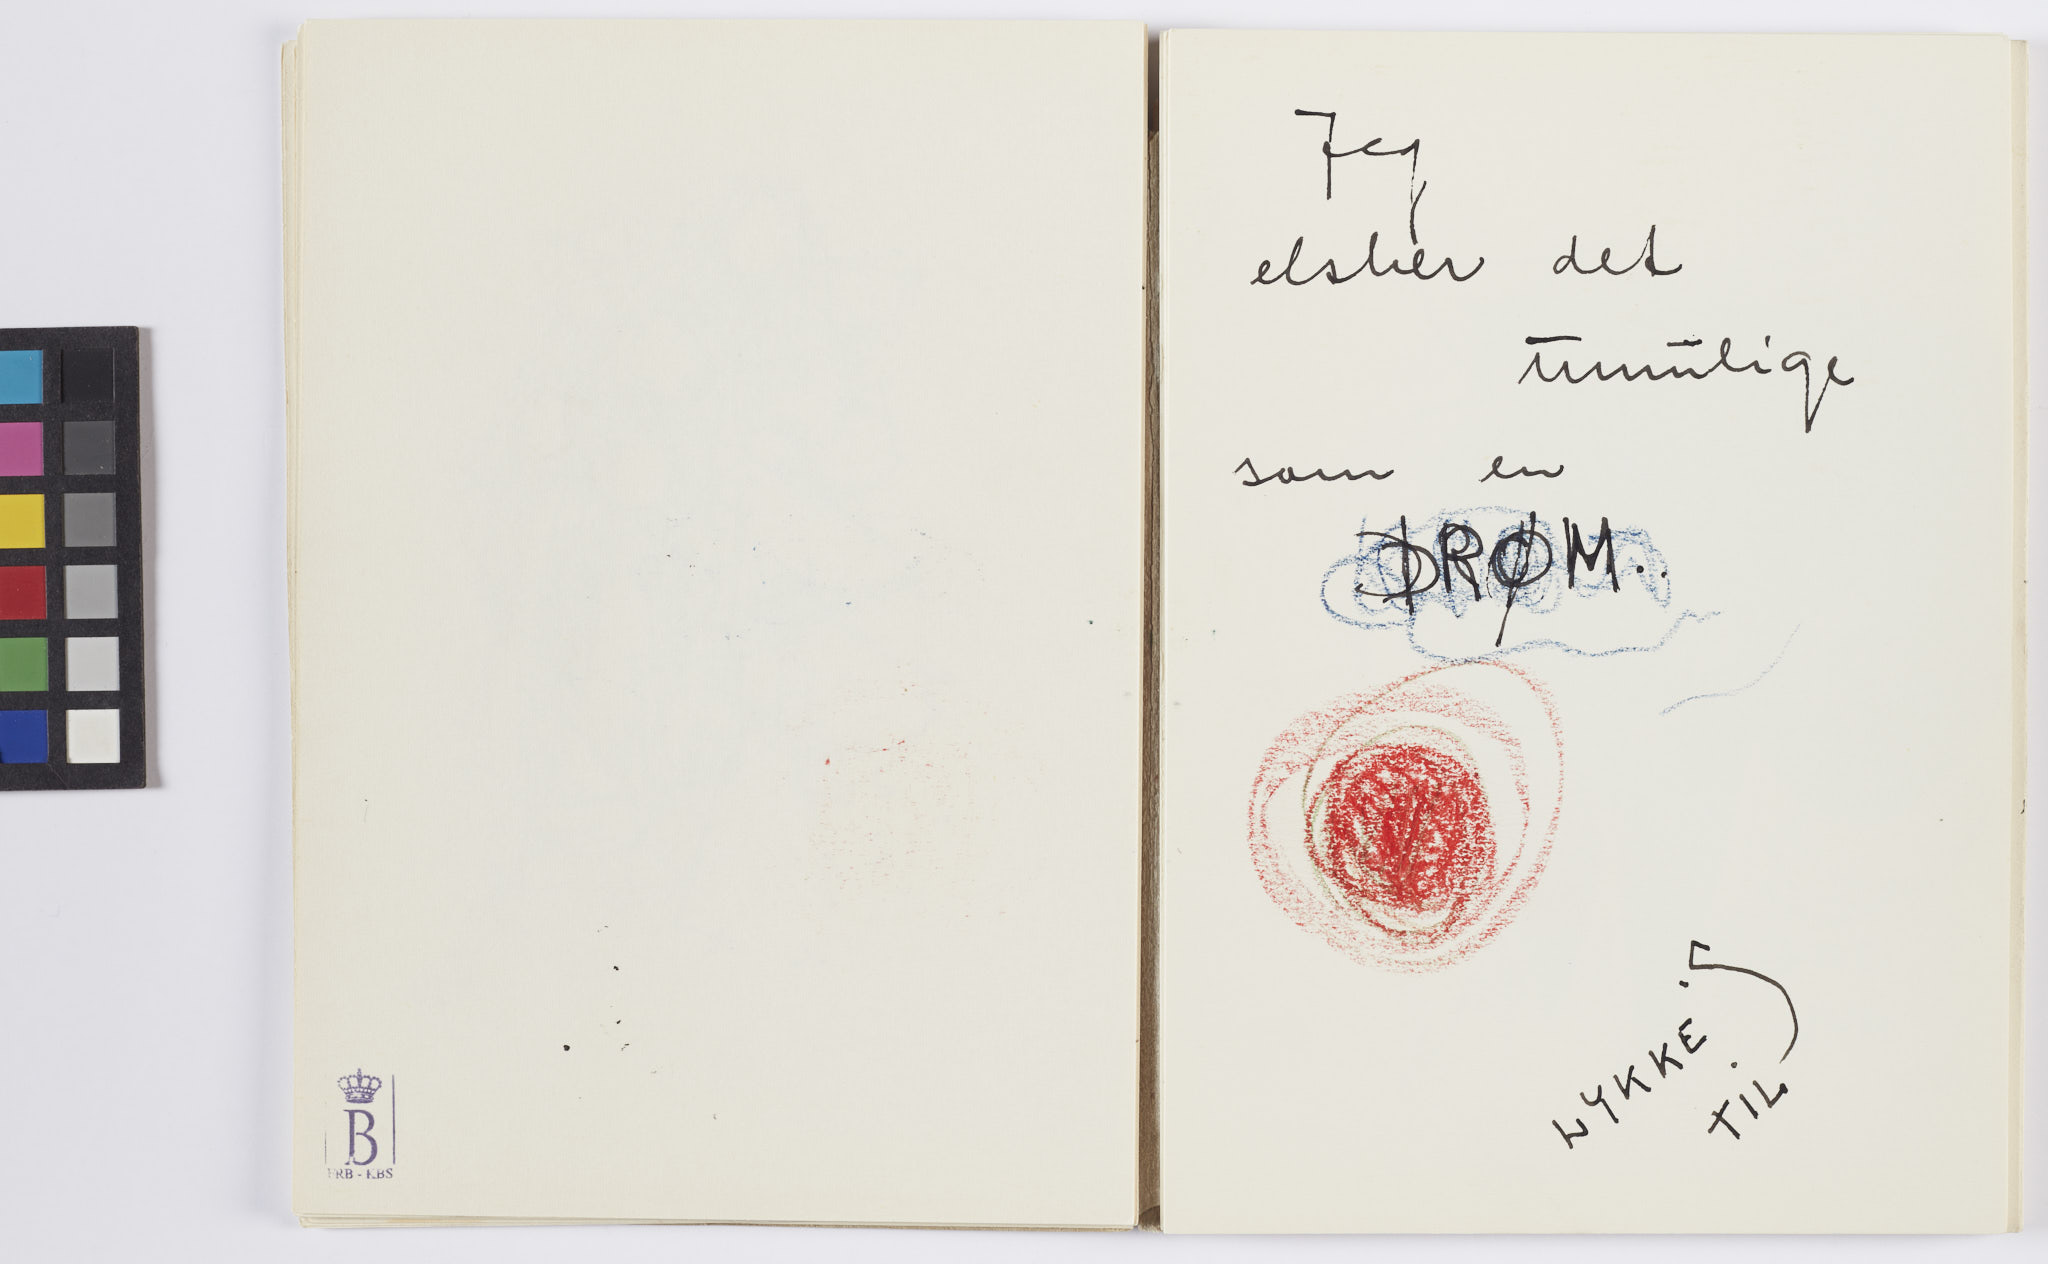 B
FRB - KBS
Jeg
elsker det
ūmūlige
som en
DRØM..
LYKKE.
TIL